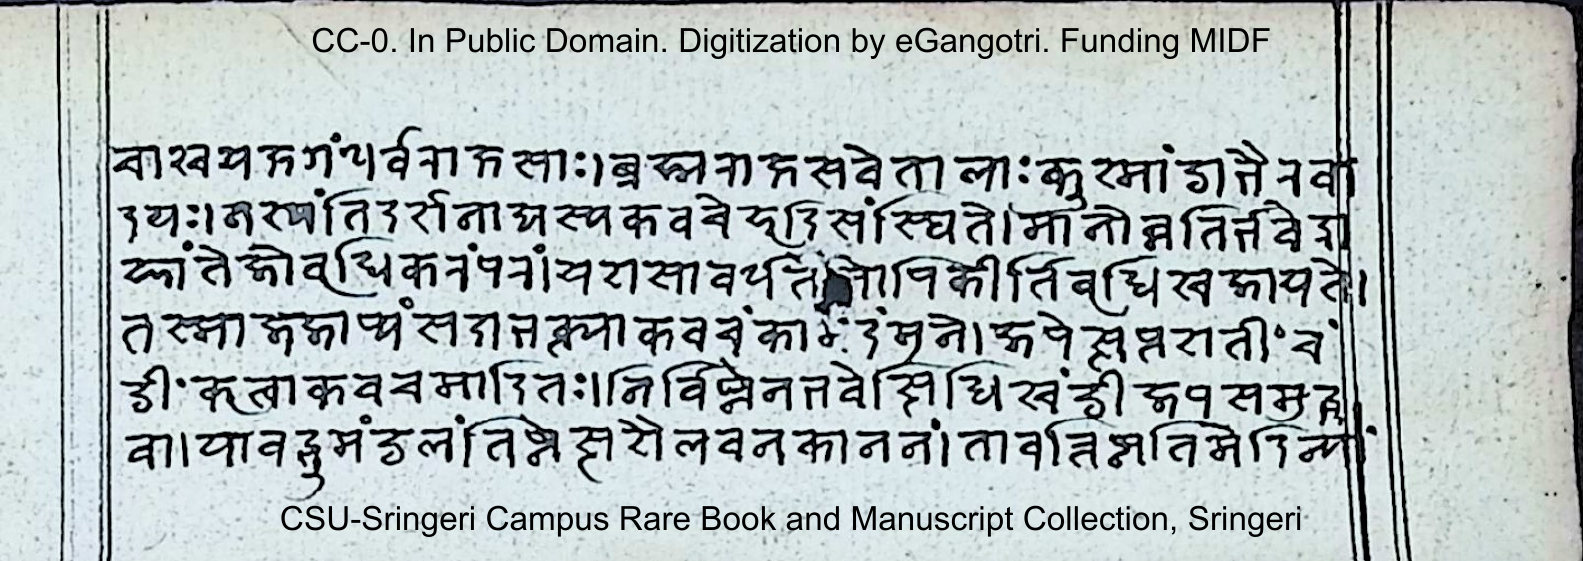 CC-0. In Public Domain. Digitization by eGangotri. Funding MIDF
वाखयक्षगंधर्वराक्षसाः।ब्रह्मराक्षसवेतालाःकुस्मांडाभैरवा
दयः।नस्यंतिदर्शनात्तस्यकवचेहृदिसंस्थिते।मानोन्नतिर्भवेद्रा
ज्ञांतेजोवृधिकरंपरं।यशसावर्धते सोपिकीर्तिवृधिस्वजायते।
तस्माज्जपेत्सदाभक्त्याकवचंका मदंमुने।जपेत्सप्तशतीं चं
डीं कृत्वाकवचमादितः।निर्विघ्नेनभवेत्सिधिश्चंडीजपसमुद्भ
वा।यावद्भूमंडलंतिष्ठेत्सशैलवनकाननं।तावत्तिष्ठतिमेदिन्यां
CSU-Sringeri Campus Rare Book and Manuscript Collection, Sringeri